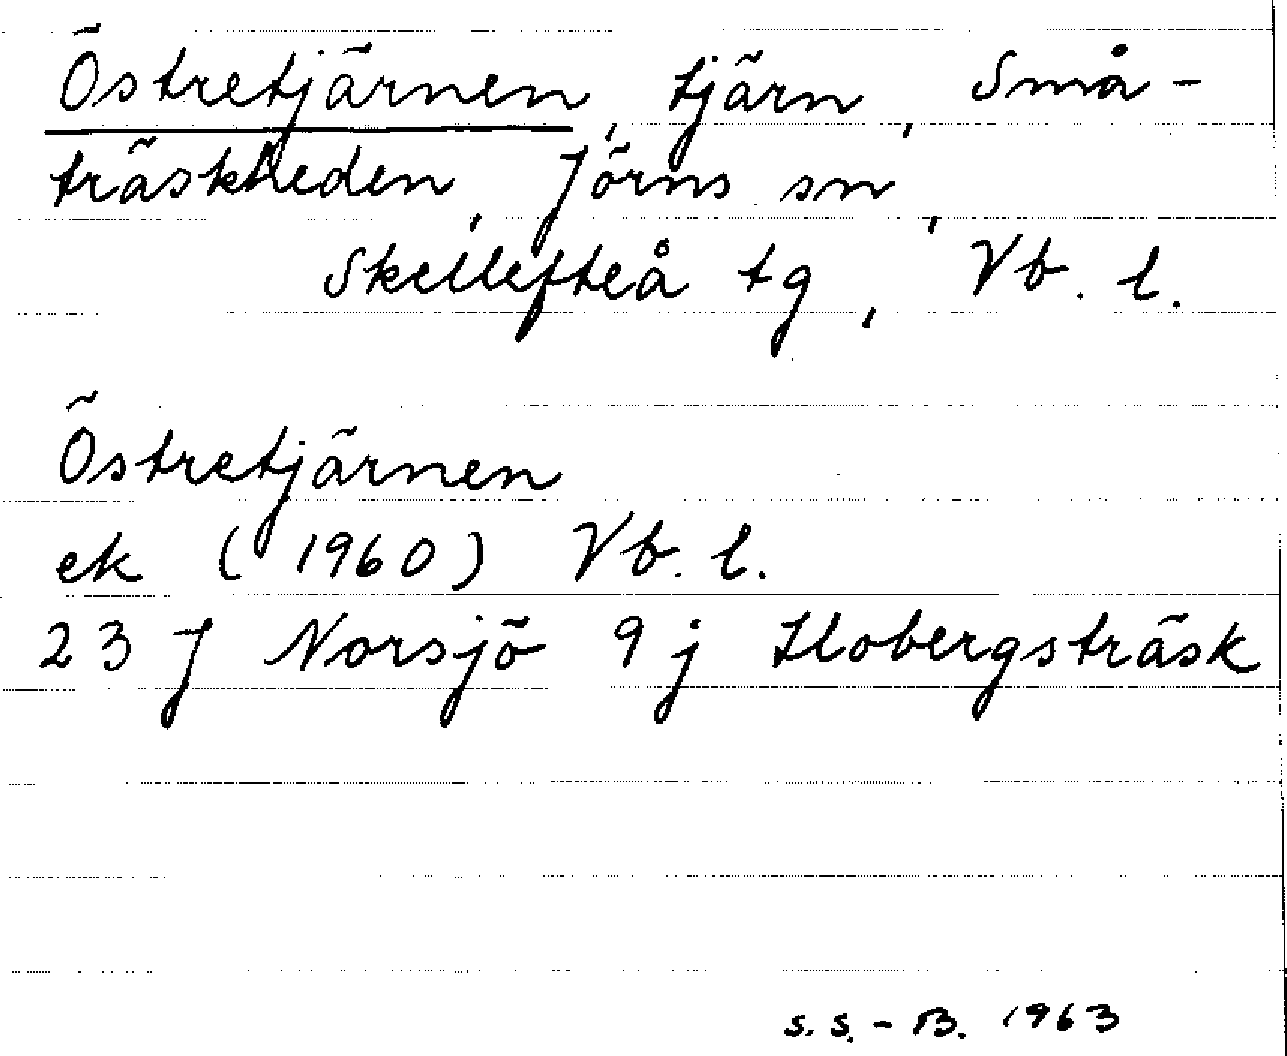 Östretjärnen, tjärn, Små-
träskheden, Jörns sn,
Skellefteå tg, Vb. l.
Östretjärnen
ek (1960) Vb. l.
23 J Norsjö 9 j Klobergsträsk
S.S.-B. 1963